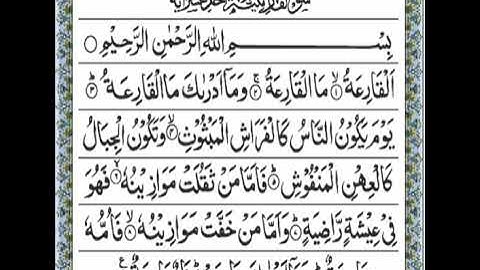 بِسْمِ اللهِ الرَّحْمٰنِ الرَّحِيْمِ
اَلْقَارِعَةُ ۙ۝۱ مَا الْقَارِعَةُ ۚ۝۲ وَمَاۤ اَدْرٰىكَ مَا الْقَارِعَةُ ؕ۝۳
يَوْمَ يَكُوْنُ النَّاسُ كَالْفَرَاشِ الْمَبْثُوْثِ ۙ۝۴ وَتَكُوْنُ الْجِبَالُ
كَالْعِهْنِ الْمَنْفُوْشِ ؕ۝۵ فَاَمَّا مَنْ ثَقُلَتْ مَوَازِيْنُهٗ ۙ۝۶ فَهُوَ
فِيْ عِيْشَةٍ رَّاضِيَةٍ ؕ۝۷ وَاَمَّا مَنْ خَفَّتْ مَوَازِيْنُهٗ ۙ۝۸ فَاُمُّهٗ